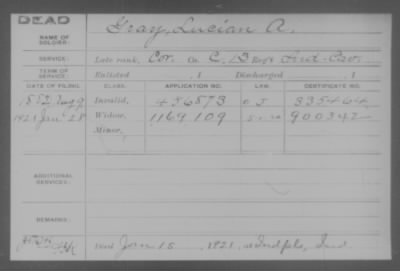 DEAD
NAME OF SOLDIER:
Gray, Lucian A.
SERVICE:
Late rank, Cor. Co. C, 13 Reg't Ind. Cav.
TERM OF SERVICE:
Enlisted , 1 Discharged , 1
DATE OF FILING. CLASS. APPLICATION NO. LAW. CERTIFICATE NO.
1882, Aug 9 Invalid, 456573 335464
1921 Jan 28 Widow, 1169109 900342
Minor,
ADDITIONAL SERVICES:
REMARKS:
Died Jan 15, 1921, at Indpls, Ind